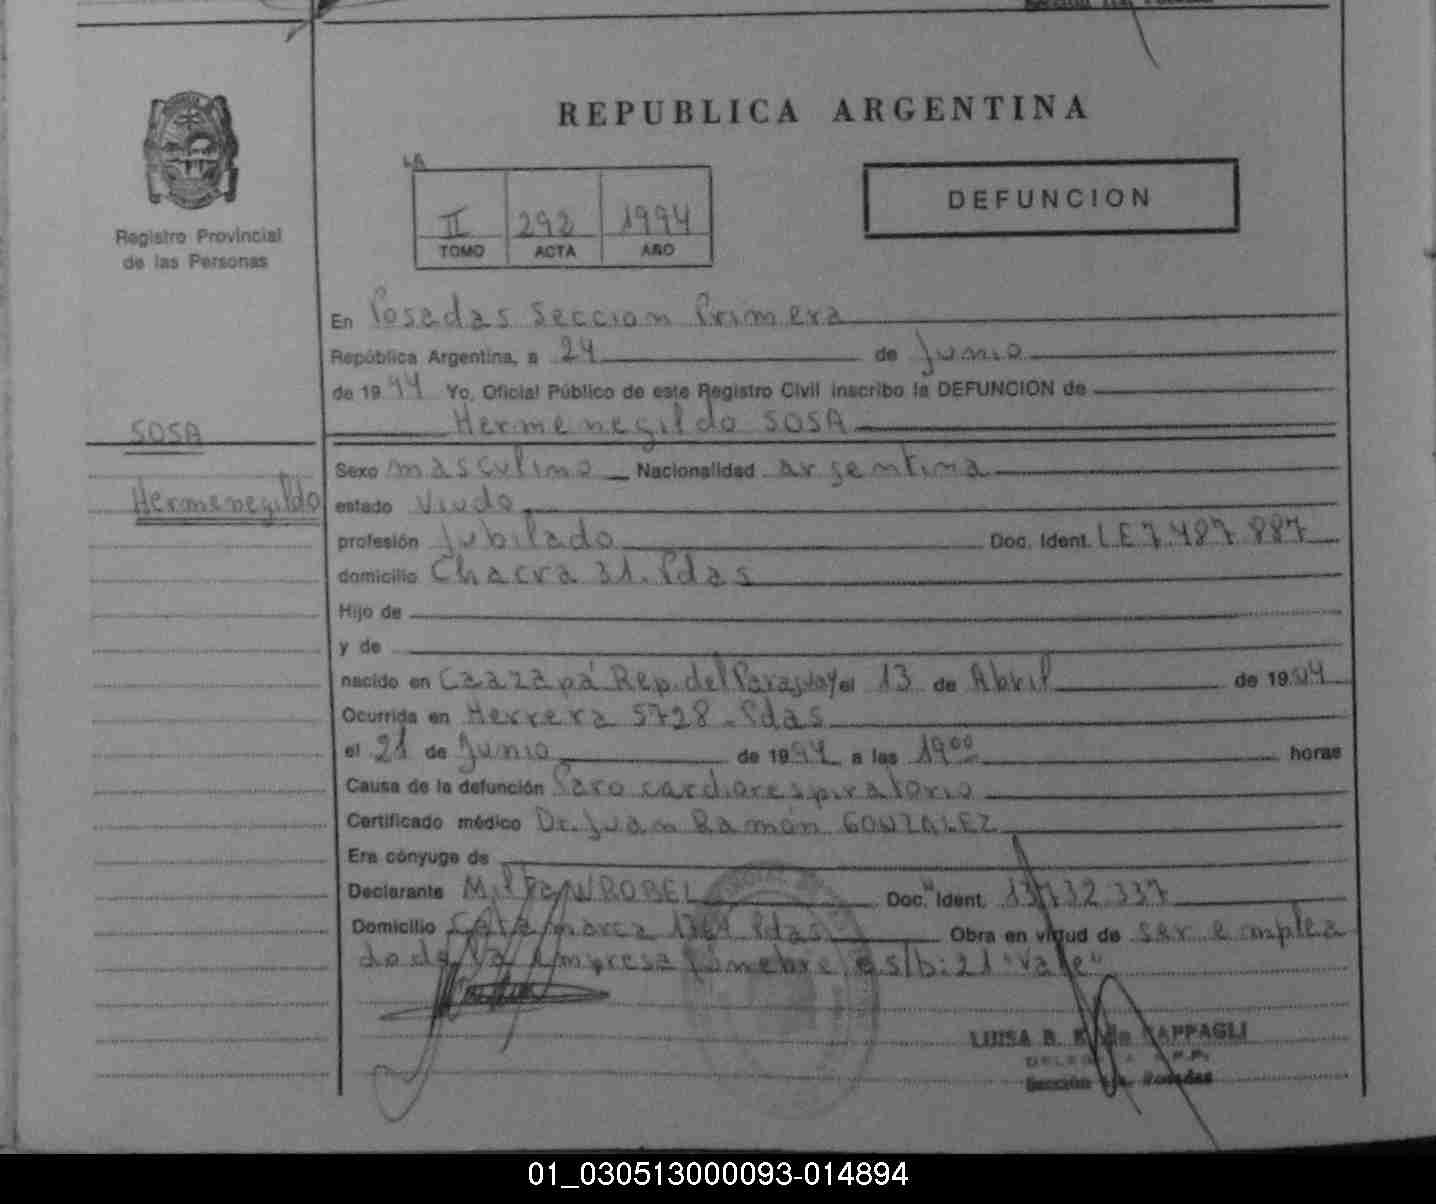 REPUBLICA ARGENTINA
Registro Provincial
de las Personas
LA
II 292 1994
TOMO ACTA AÑO
DEFUNCION
En Posadas Seccion Primera
República Argentina, a 24 de Junio
de 1994 Yo, Oficial Público de este Registro Civil inscribo la DEFUNCION de
Hermenegildo SOSA
SOSA
Hermenegildo
Sexo masculino Nacionalidad argentina
estado Viudo
profesión Jubilado Doc. Ident. LE 7.487.887
domicilio Chacra 31. Pdas
Hijo de
y de
nacido en Caazapá Rep. del Paraguay el 13 de Abril de 1904
Ocurrida en Herrera 5728 - Pdas
el 21 de Junio de 1994 a las 19⁰⁰ horas
Causa de la defunción Paro cardiorespiratorio
Certificado médico Dr. Juan Ramón GONZALEZ
Era cónyuge de
Declarante WROBEL Doc. Ident. 13.732.337
Domicilio Catamarca Pdas Obra en virtud de ser emplea
do de la empresa fúnebre
LUISA B. de CAPPAGLI
Sección 1ra. Posadas
01_030513000093-014894